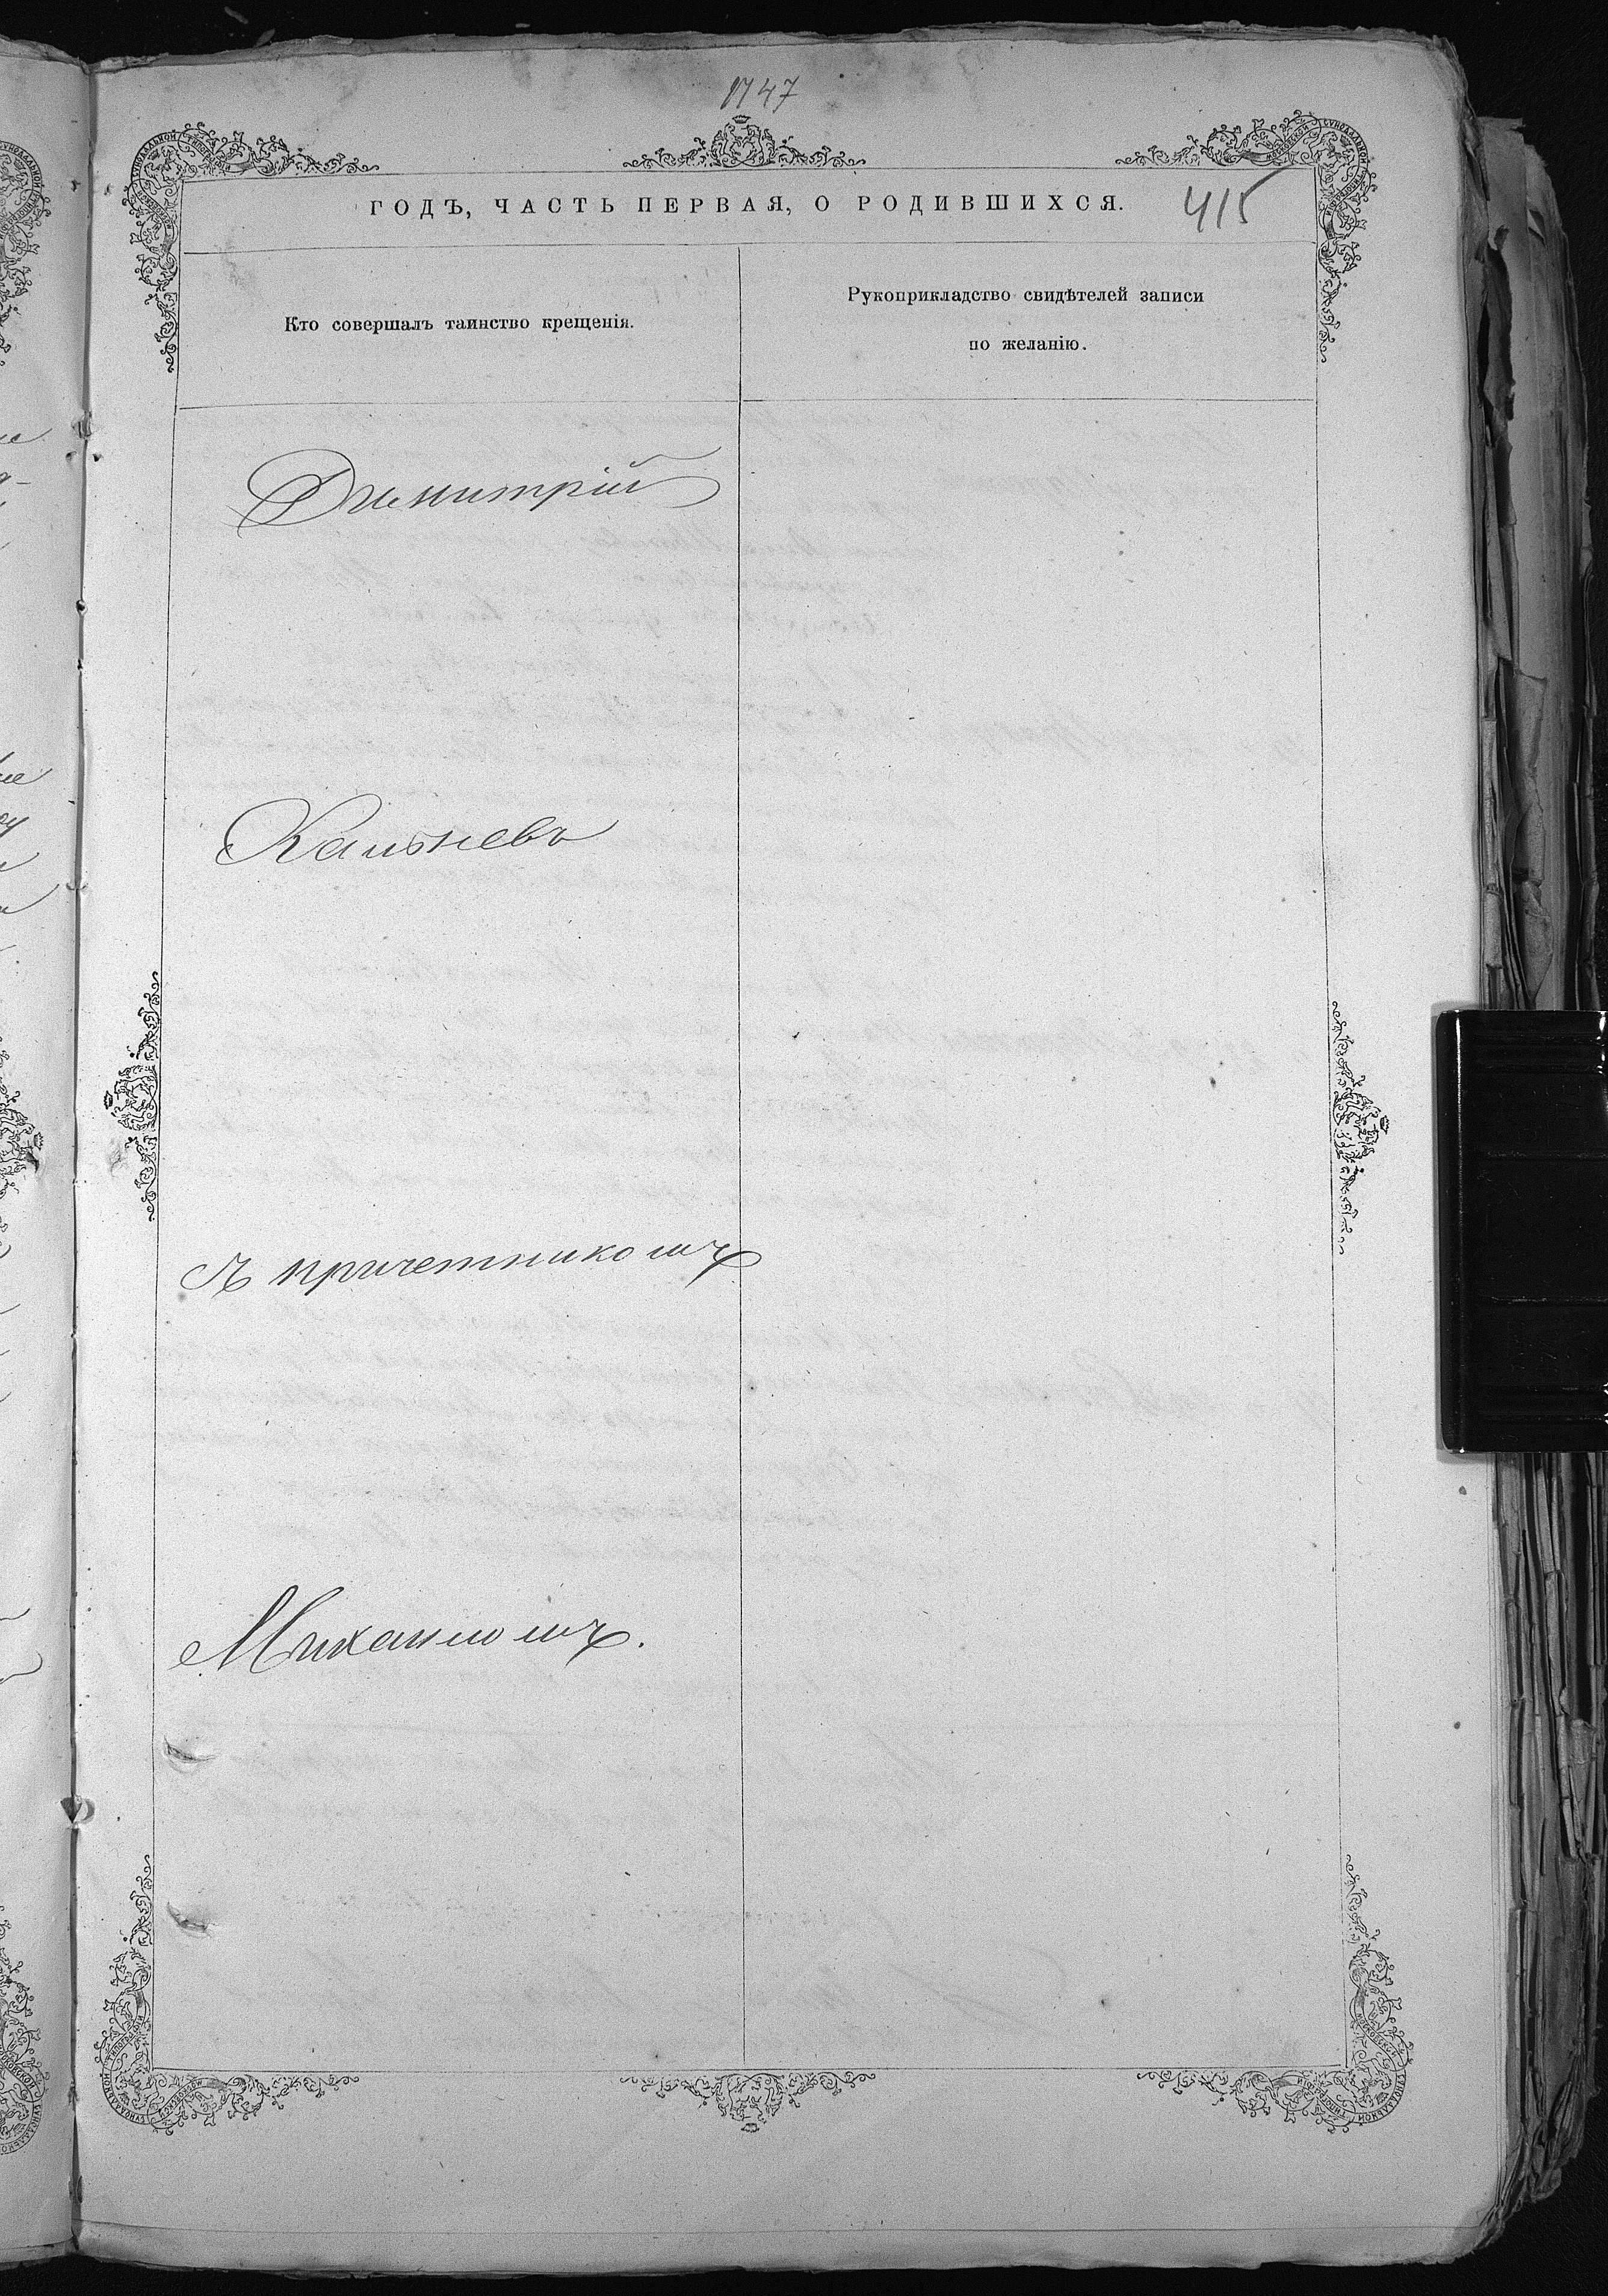 1747
ГОДЪ, ЧАСТЬ ПЕРВАЯ, О РОДИВШИХСЯ.
415
Кто совершалъ таинство крещенія.
Рукоприкладство свидѣтелей записи
по желанію.
Димитрій
съ причетникомъ